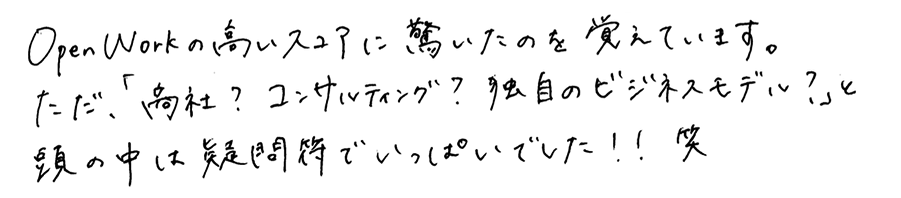 OpenWorkの高いスコアに驚いたのを覚えています。
ただ、「商社？コンサルティング？独自のビジネスモデル？」と
頭の中は疑問符でいっぱいでした！！笑